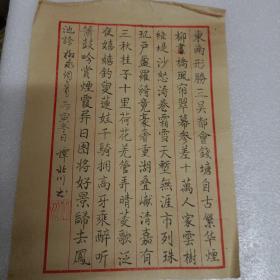 東南形勝三吳都會錢塘自古繁華煙
柳畫橋風帘翠幕參差十萬人家雲樹
繞堤沙怒濤卷霜雪天塹無涯市列珠
璣戶盈羅綺競豪奢重湖疊巘清嘉有
三秋桂子十里荷花羌管弄晴菱歌泛
夜嬉嬉釣叟蓮娃千騎擁高牙乘醉聽
簫鼓吟賞煙霞異日圖將好景歸去鳳
池誇 柳永詞 丙寅冬日 北川